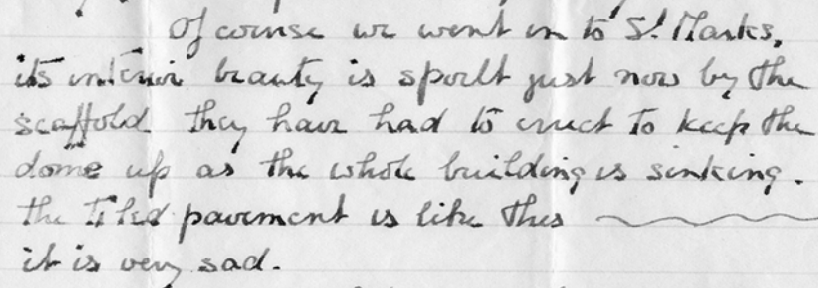 Of course we went in to St Marks,
its interior beauty is spoilt just now by the
scaffold they have had to erect to keep the
dome up as the whole building is sinking.
the tiled pavement is like this
it is very sad.